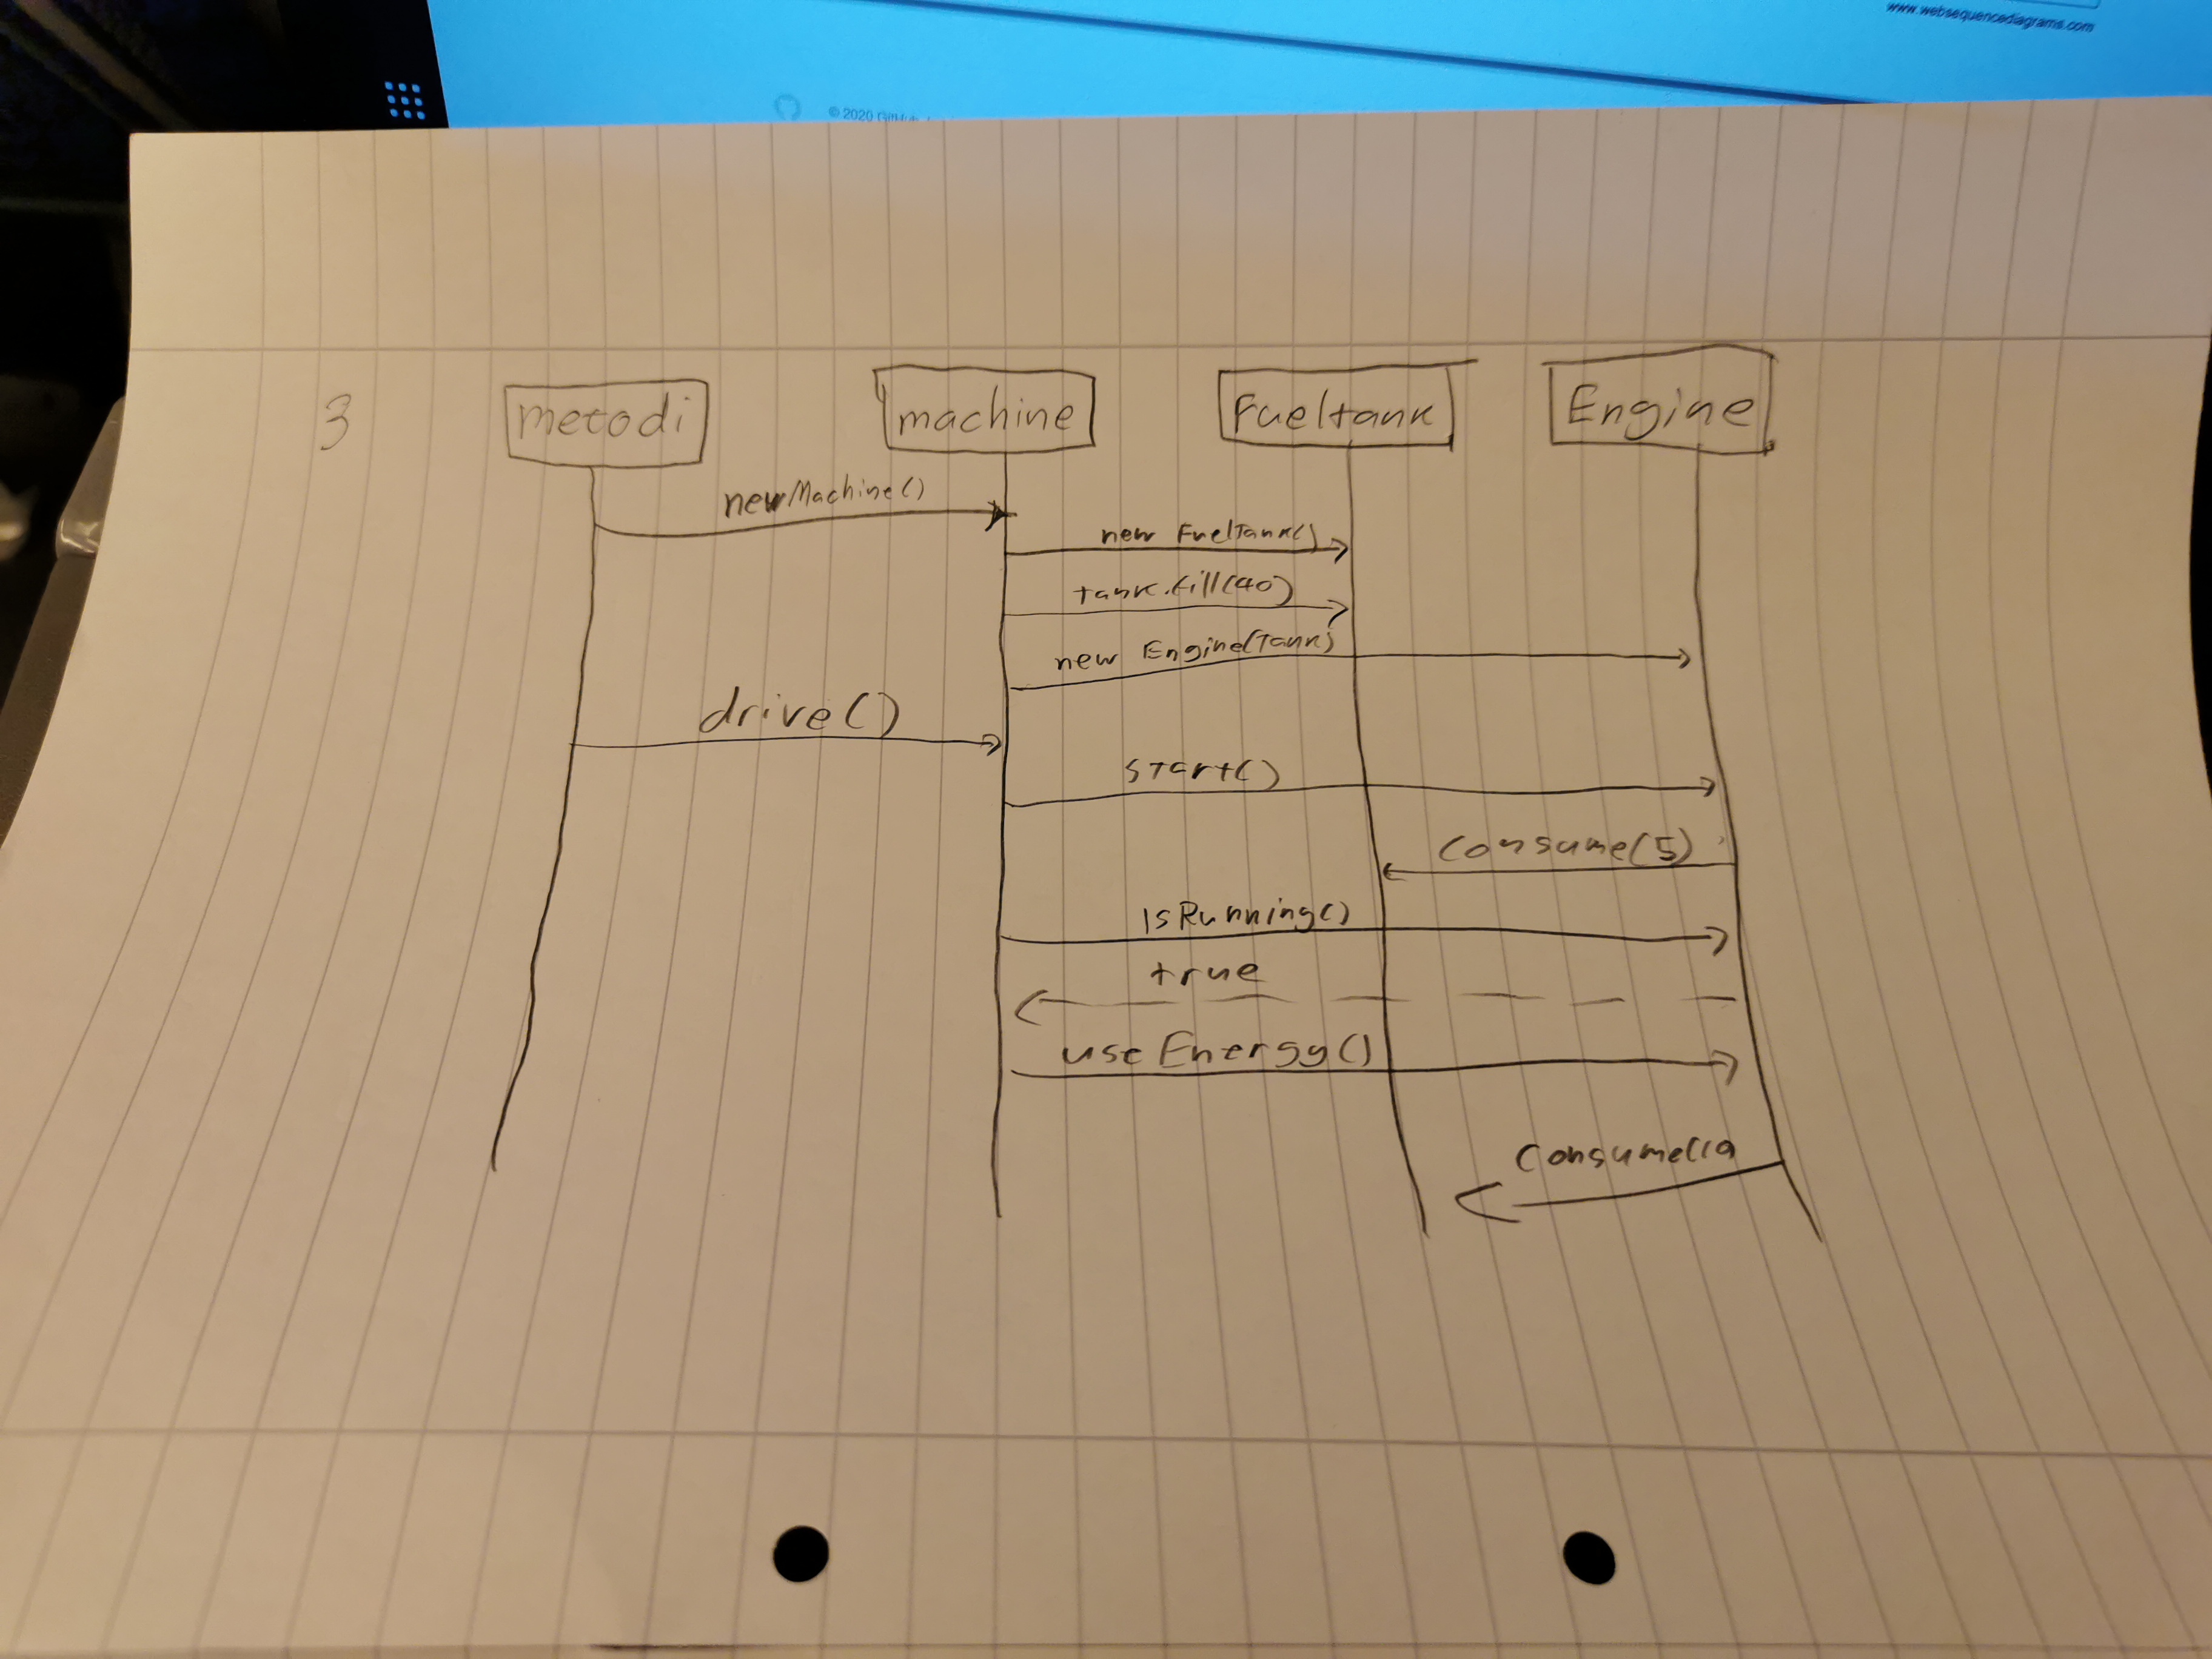 www.websequencediagrams.com
© 2020 GitHub,
3
metodi
machine
Fueltank
Engine
newMachine()
new FuelTank()
tank.fill(40)
new Engine(Tank)
drive()
start()
Consume(5)
IsRunning()
true
useEnergy()